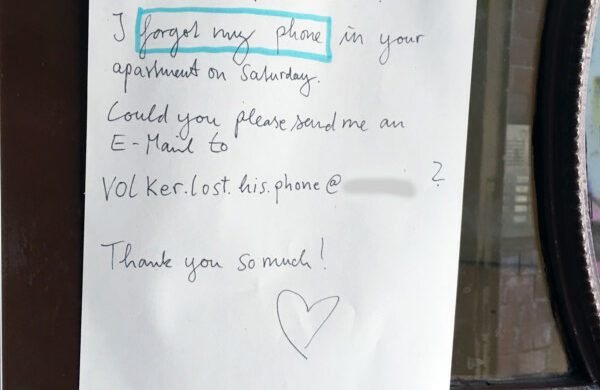 I forgot my phone in your
apartment on Saturday.
Could you please send me an
E-Mail to
VOLKer.lost.his.phone@ ?
Thank you so much!